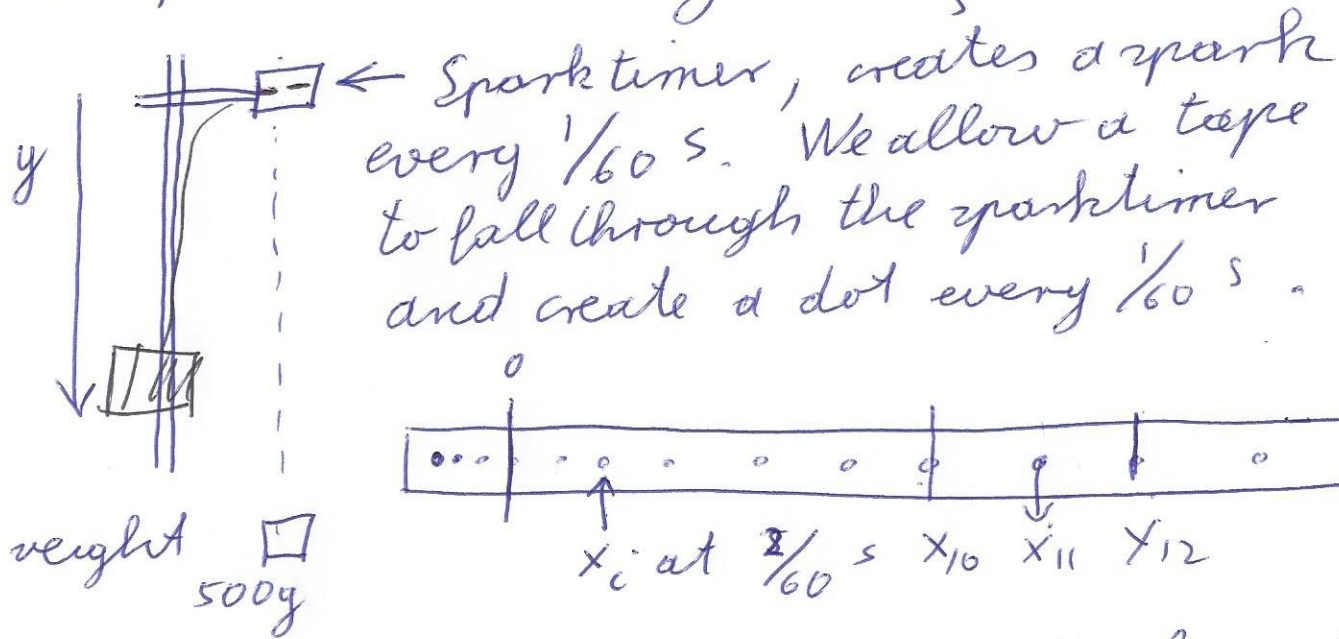 ← Sparktimer, creates a spark
y
every 1/60 s. We allow a tape
to fall through the sparktimer
and create a dot every 1/60 s.
0
weight
500g
x_i at 2/60 s x_10 x_11 x_12